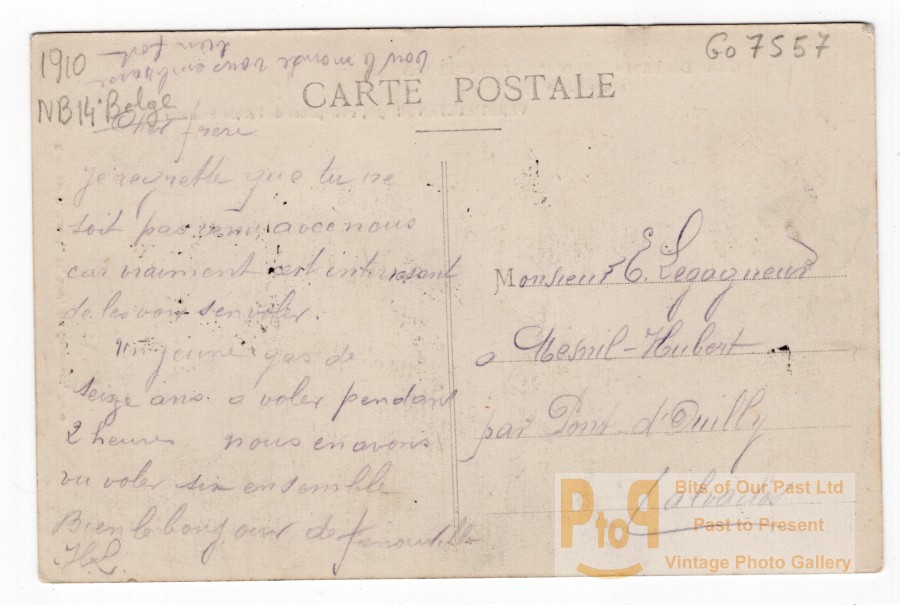 1910
NB14 Belge
Go 7557
tout le monde vous embrasse
bien fort
CARTE POSTALE
Cher frere
Je regrette que tu ne
soit pas venu avec nous
car vraiment cest interresent
de les voir senvoler.
Un jeune gas de
seize ans a voler pendant
2 heures nous en avons
vu voler six ensemble
Bien le bonjour de
H.L.
Monsieur E. Legagneur
a Mesnil-Hubert
par Pont d'Ouilly
Calvados
PtoP
Bits of Our Past Ltd
Past to Present
Vintage Photo Gallery